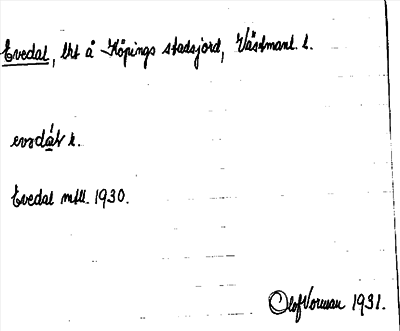 Evedal, lht å Köpings stadsjord, Västmanl. l.
Evedal mtll. 1930.
Olof Vorman 1931.